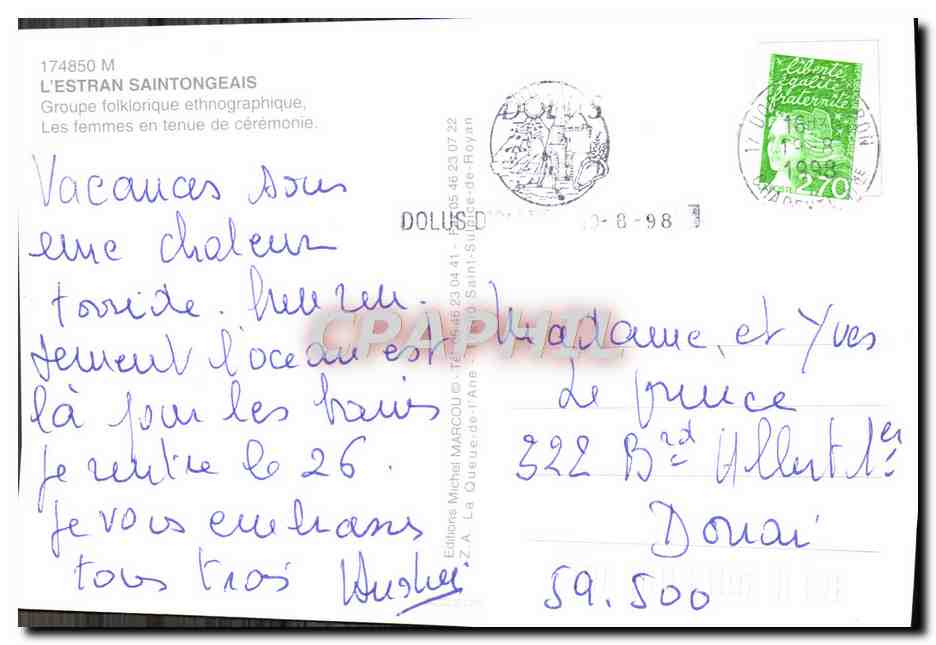 174850 M
L'ESTRAN SAINTONGEAIS
Groupe folklorique ethnographique,
Les femmes en tenue de cérémonie.
Vacances sous
une chaleur
torride. heureu.
sement l'océan est
là pour les bains
je rentre le 26.
je vous embrasse
tous trois
Editions Michel MARCOU © - Tél. 05 46 23 04 41 - 05 46 23 07 22
Z.A. La Queue-de-l'Ane - Saint-Sulpice-de-Royan
DOLUS
DOLUS D' -8-98
liberté
égalité
fraternité
2,70
16H
1998
CPAPHIL
Madame et Yves
Le prince
322 Brd Albert 1er
Douai
59.500